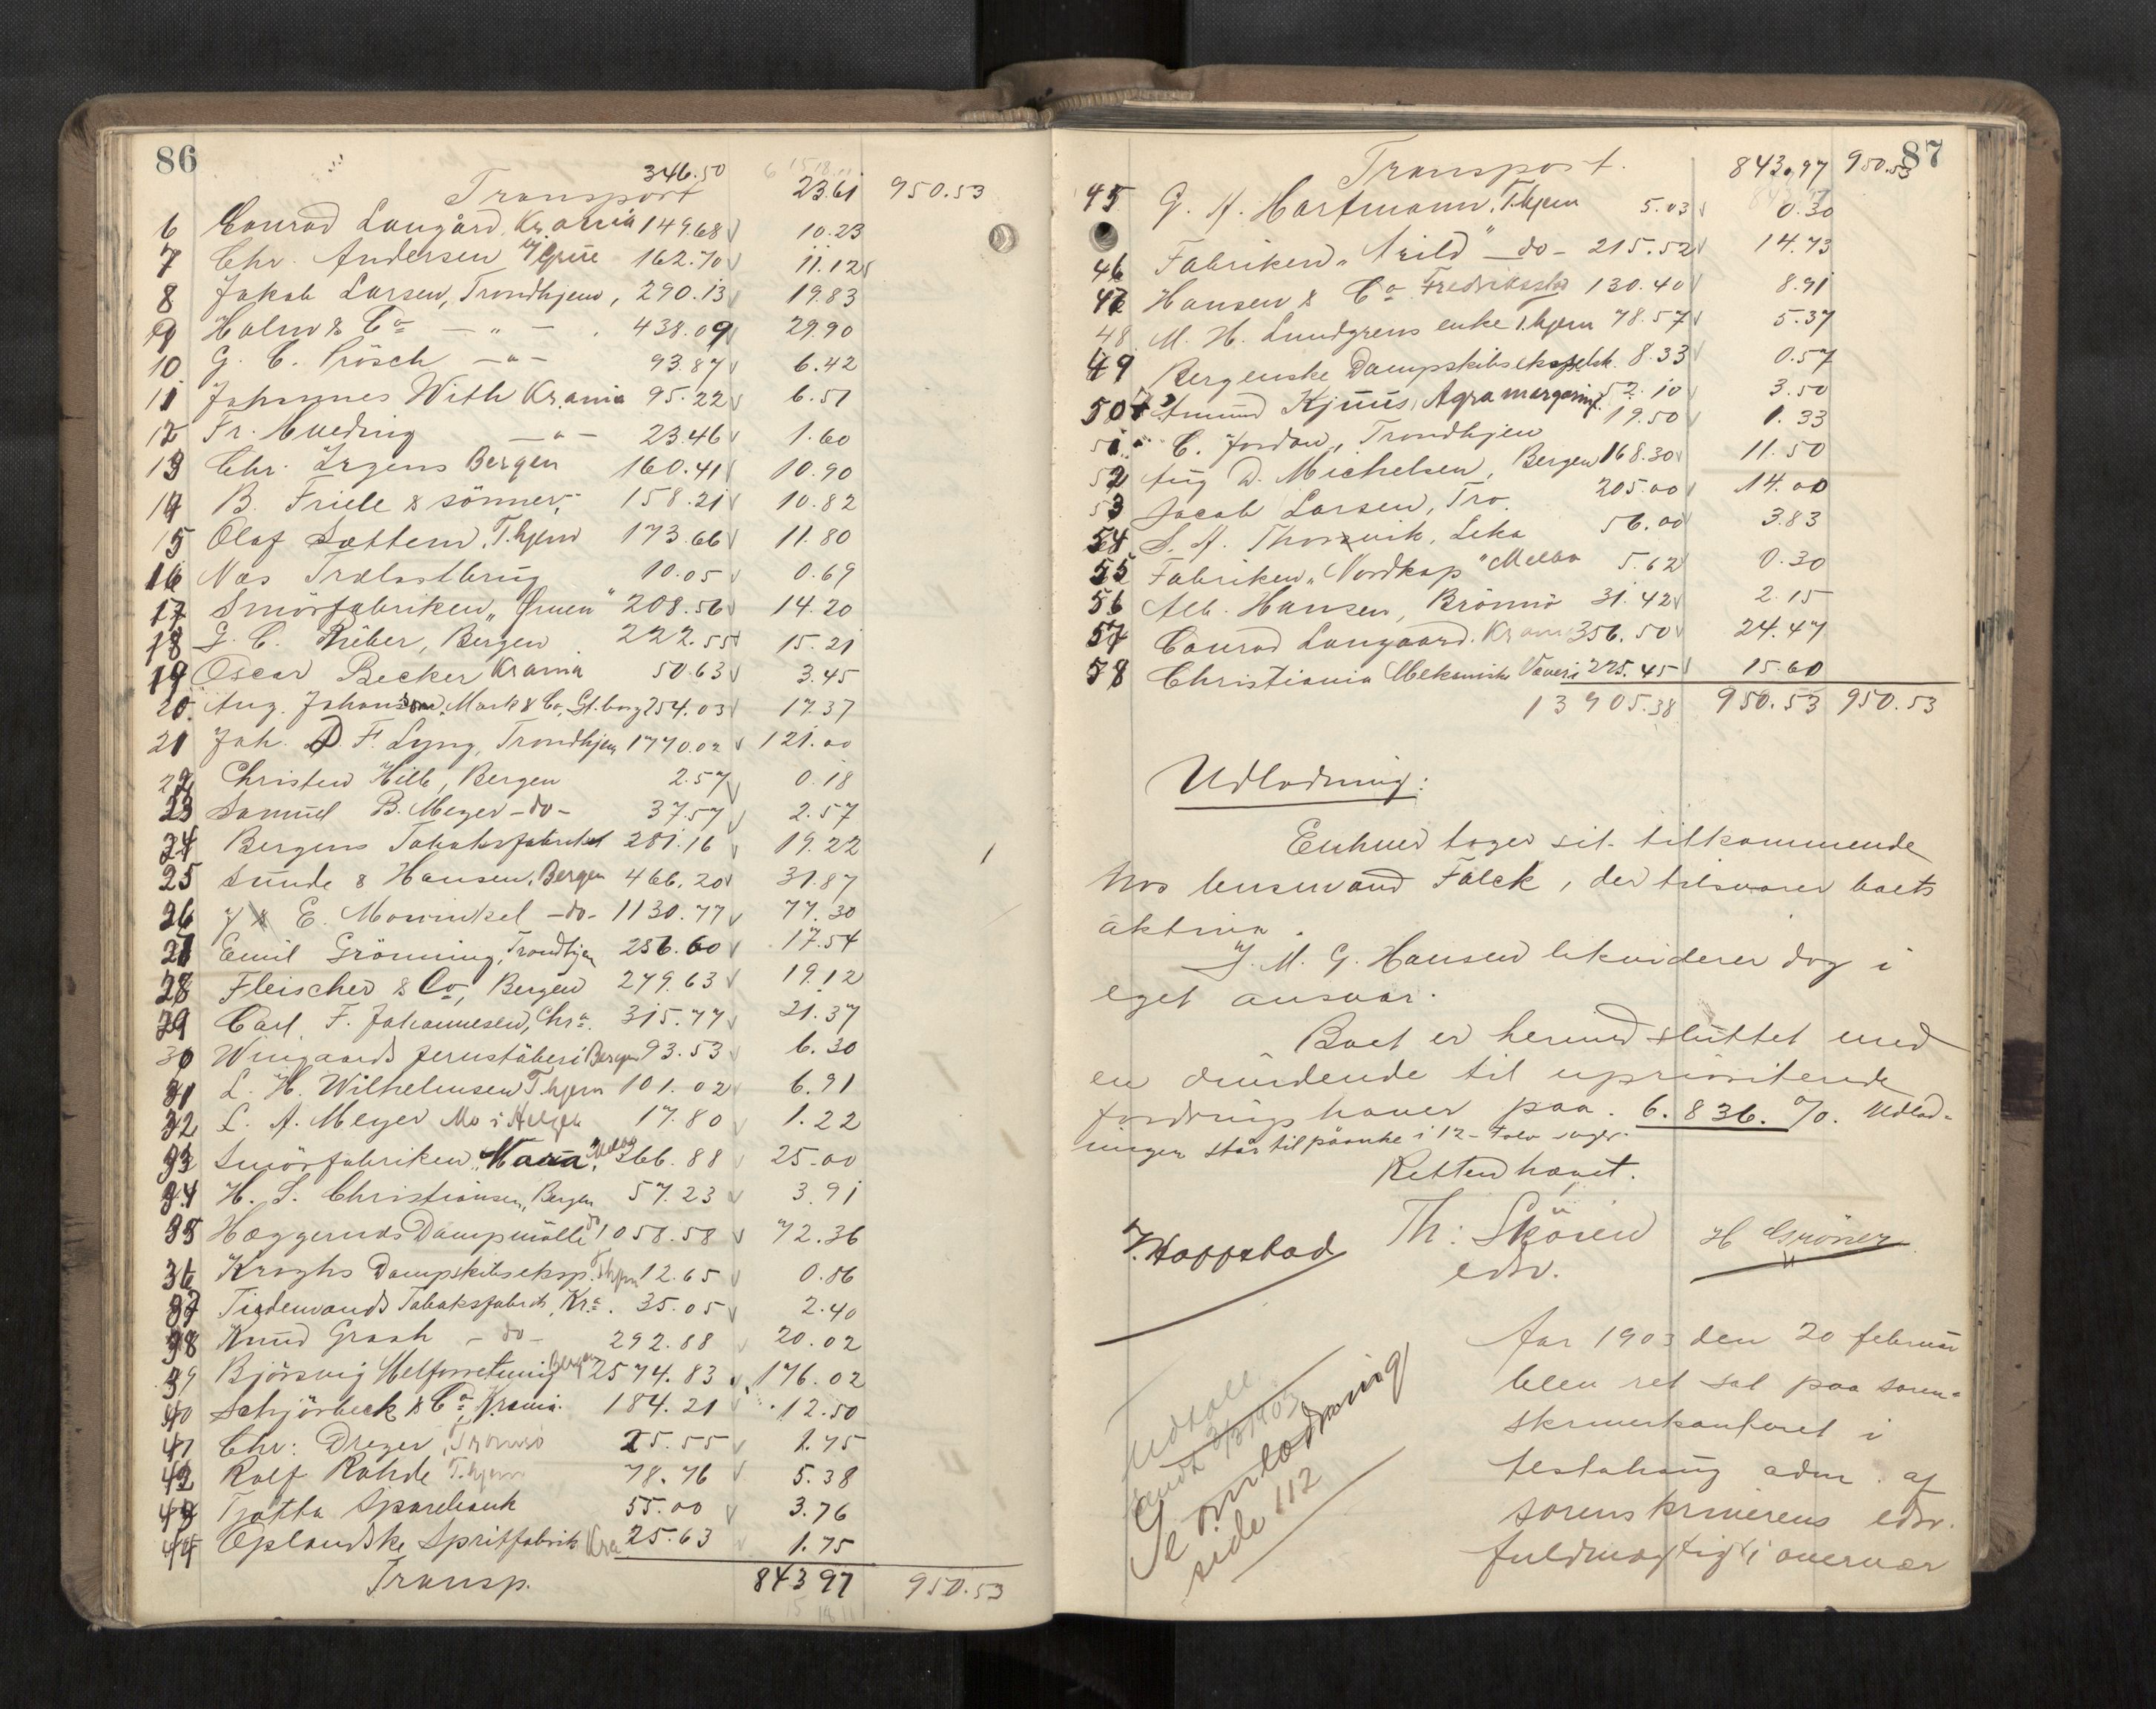 86
346.50
Transport 23.61 950.53
6 Conrad Langård Kr.ania 149.68 10.23
7 Chr. Andersen Vigrue 162.70 11.12
8 Jakob Larsen, Trondhjem, 290.13 19.83
9 Holm & Co — „ — 438.09 29.90
10 G. C. Prösch — „ — 93.87 6.42
11 Johannes With Kr.ania 95.22 6.51
12 Fr. Mueding — „ — 23.46 1.60
13 Chr. Irgens Bergen 160.41 10.90
14 B. Friele & sönner, 158.21 10.82
15 Olaf Sættem, T.hjem 173.66 11.80
16 Næs Trælastbrug 10.05 0.69
17 Smörfabriken „Ørnen" 208.56 14.20
18 G. C. Rieber, Bergen 222.55 15.21
19 Oscar Becker Krania 50.63 3.45
20. Aug. Johansson, Mark & Co, Gt.borg 254.03 17.37
21 Joh. D. F. Lyng, Trondhjem 1770.02 121.00
22 Christen Hille, Bergen 2.57 0.18
23 Samuel B. Meyer -do- 37.57 2.57
24 Bergens Tobaksfabrikk 281.16 19.22
25 Sunde & Hansen, Bergen 466.20 31.87
26 J & E. Mowinkel -do- 1130.77 77.30
27 Emil Grönning, Trondhjem 256.60 17.54
28 Fleischer & Co, Bergen 279.63 19.12
29 Carl F. Johannesen, Chra. 315.77 21.37
30 Wingaards Jernstöberi Bergen 93.53 6.30
31 L. H. Wilhelmsen T.hjem 101.02 6.91
32 L. A. Meyer Mo i Helgel. 17.80 1.22
33 Smörfabriken „Nora", Melbo 366.88 25.00
34 H. S. Christiansen, Bergen 57.23 3.91
35 Hæggernæs Dampmölle do 1058.58 72.36
36 Kroghs Dampskibseksp. Thjem 12.65 0.86
37 Tiedemands Tobaksfabrik, Kra. 35.05 2.40
38 Knud Graah - do - 292.88 20.02
39 Björsvig Melforretning Bergen 2574.83 176.02
40 Schjörbeck & Co, Krania. 184.21 12.50
41 Chr: Dreyer, Tromsö 25.55 1.75
42 Rolf Rohde T.hjem 78.76 5.38
43 Tjøtta Sparebank 55.00 3.76
44 Oplandske Spritfabrik Kra 25.63 1.75
Transp. 843 97 950.53
87
Transport. 843.97 950.53
45 G. A. Hartmann, T.hjem 5.03 0.30
46 Fabriken „Arild" -do- 215.52 14.73
47 Hansen & Co Fredriksstad 130.40 8.91
48 M. H. Lundgrens enke T.hjem 78.57 5.37
49 Bergenske Dampskibsekspedit. 8.33 0.57
50 Amund Kjuus, Agra margarinf. 52.10 3.50
51 C. Jordan, Trondhjem 19.50 1.33
52 Aug D. Michelsen, Bergen 168.30 11.50
53 Jacob Larsen, Tro. 205.00 14.00
54 S. A. Thorsvik, Leka 56.00 3.83
55 Fabriken „Nordkap" Melbo 5.62 0.30
56 Alb. Hansen, Brönnö 31.42 2.15
57 Conrad Langaard. Krania 356.50 24.47
58 Christiania Mekaniske Væveri 225.45 15.60
13 905.38 950.53 950.53
Udlodning:
Enhver tager sit tilkommende
hos lensmand Falck, der tilsvarer boets
aktiva.
J. M. G. Hansen likviderer dog i
eget ansvar.
Boet er hermed sluttet med
en dividende til uprioriterede
fordringshaver paa. 6.836. %. Udlod-
ningen står til påanke i 12 - tolv uger.
Retten hævet.
J. Hoppstad Th: Sköien H Gröner
edsv.
Aar 1903 den 20 februar
blev ret sat paa soren-
skriverkontoret i
testahaug adm. af
sorenskriverens edsv.
fuldmægtig i overvær
Se omlodning
side 112